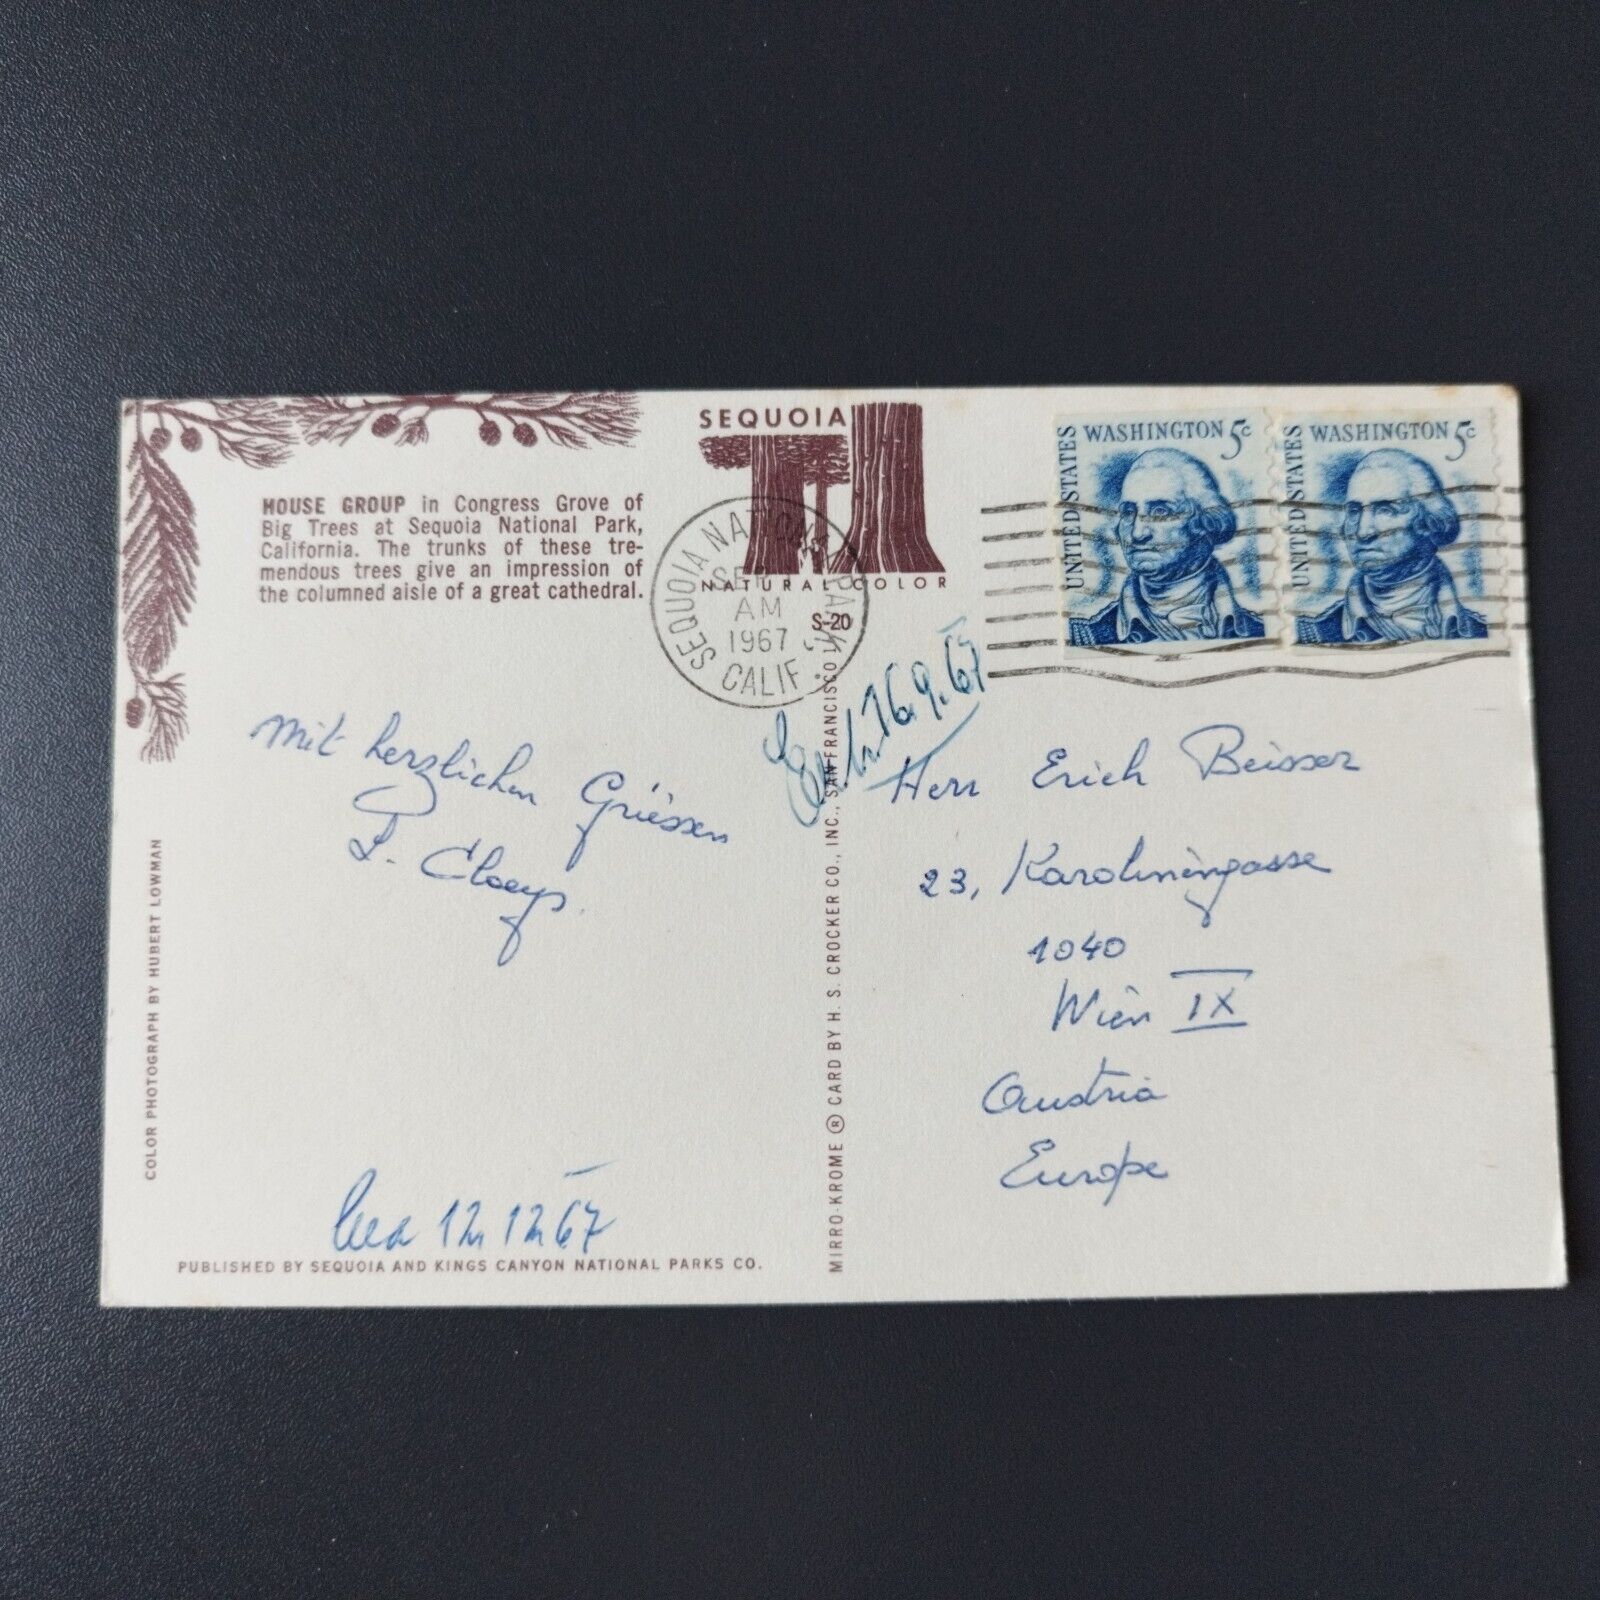 HOUSE GROUP in Congress Grove of
Big Trees at Sequoia National Park,
California. The trunks of these tre-
mendous trees give an impression of
the columned aisle of a great cathedral.
SEQUOIA
NATURAL COLOR
S-20
SEQUOIA NATIONAL PARK,
SEP
AM
1967
CALIF.
UNITED STATES
WASHINGTON 5c
UNITED STATES
WASHINGTON 5c
Mit herzlichen Grüssen
16.9.67
Herr Erich Beisser
23, Karolinengasse
1040
Wien IX
Austria
Europe
67
COLOR PHOTOGRAPH BY HUBERT LOWMAN
PUBLISHED BY SEQUOIA AND KINGS CANYON NATIONAL PARKS CO.
MIRRO-KROME ® CARD BY H. S. CROCKER CO., INC., SAN FRANCISCO 1,